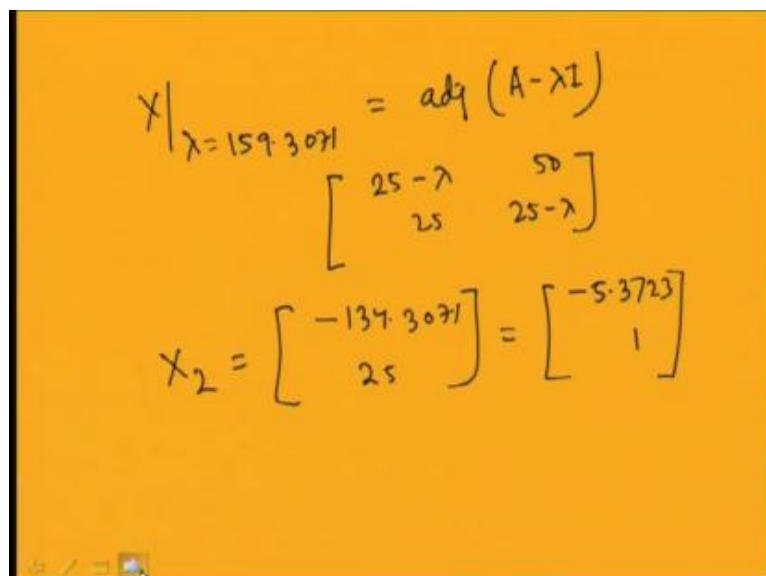 X|λ=159.3071 = adj (A-λI)
[25-λ 50
25 25-λ]
X2 = [-134.3071 25] = [-5.3723 1]